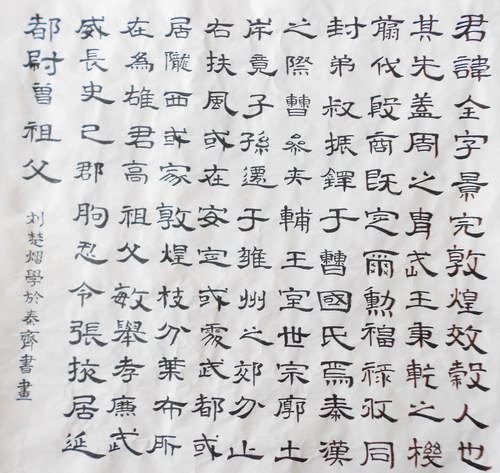 君諱全字景完敦煌效穀人也
其先蓋周之胄武王秉乾之機
翦伐殷商既定爾勳福祿攸同
封弟叔振鐸于曹國氏焉秦漢
之際曹參夾輔王室世宗廓土
斥竟子孫遷于雍州之郊分止
右扶風或在安定或處武都或
居隴西或家敦煌枝分葉布所
在為雄君高祖父敏舉孝廉武
威長史巴郡朐忍令張掖居延
都尉曾祖父
刘楚熠學於秦齊書畫